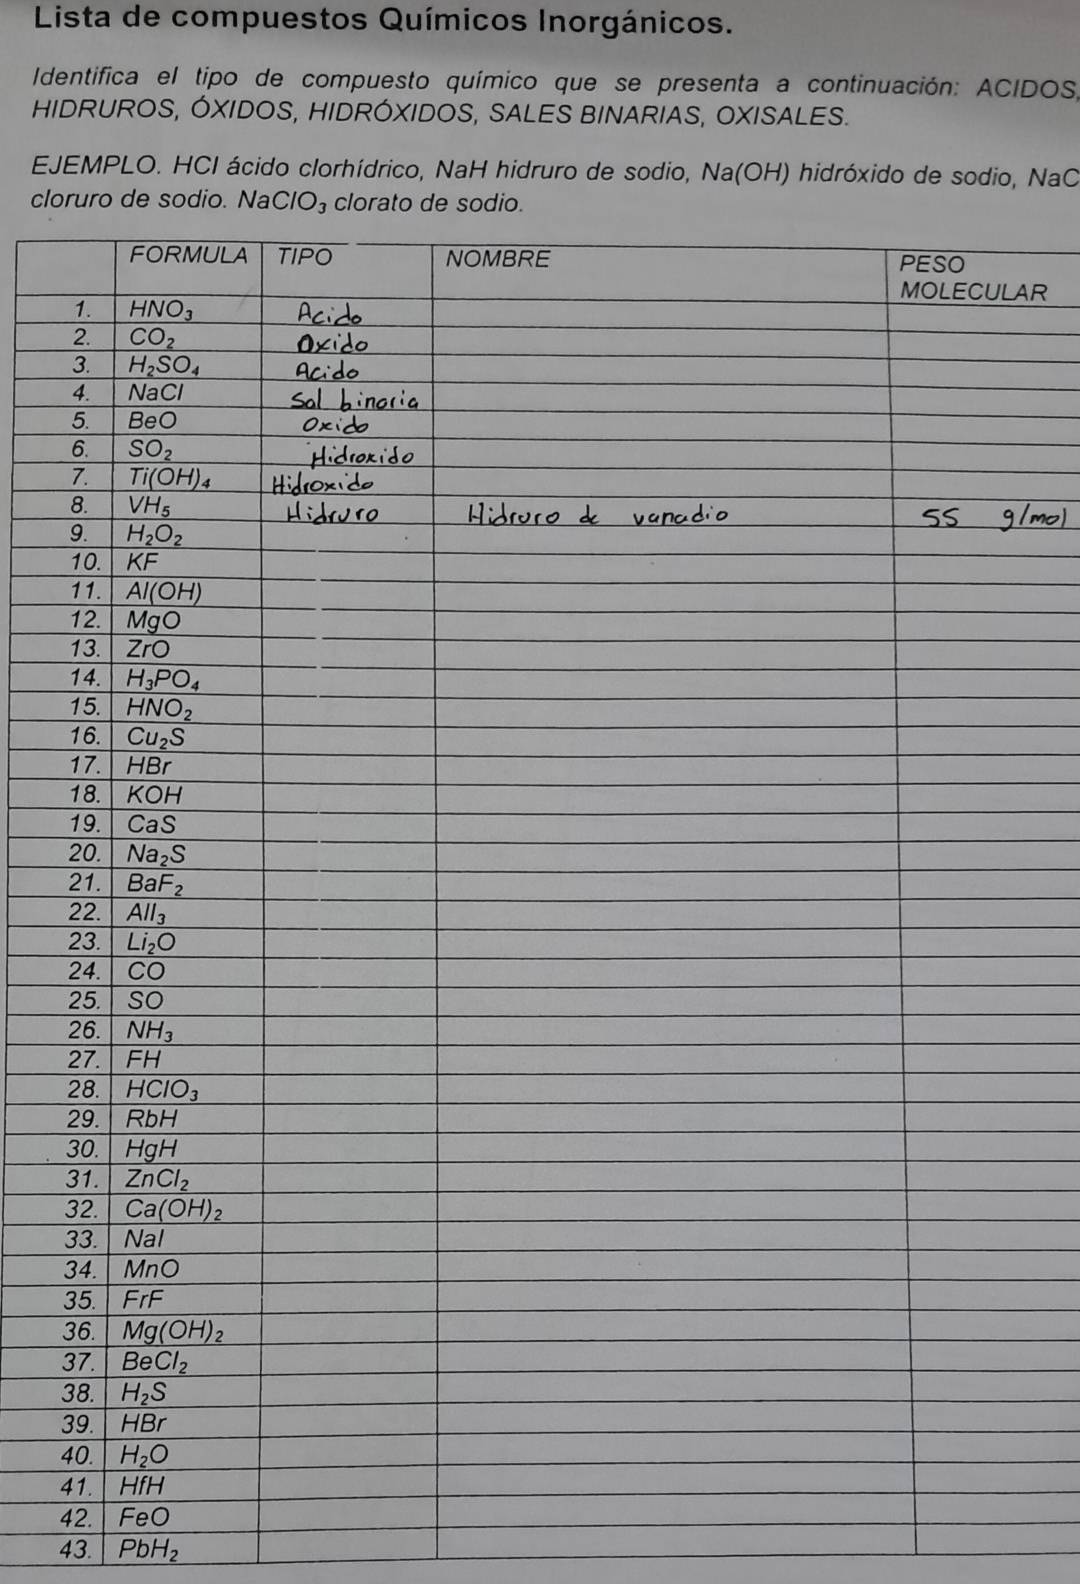 Lista de compuestos Químicos Inorgánicos.
Identifica el tipo de compuesto químico que se presenta a continuación: ACIDOS,
HIDRUROS, ÓXIDOS, HIDRÓXIDOS, SALES BINARIAS, OXISALES.
EJEMPLO. HCl ácido clorhídrico, NaH hidruro de sodio, Na(OH) hidróxido de sodio, NaC
cloruro de sodio. NaClO₃ clorato de sodio.
FORMULA TIPO NOMBRE PESO MOLECULAR
1. HNO₃ Acido
2. CO₂ Oxido
3. H₂SO₄ Acido
4. NaCl Sal binaria
5. BeO Oxido
6. SO₂ Hidroxido
7. Ti(OH)₄ Hidroxido
8. VH₅ Hidruro Hidruro de vanadio 55 g/mol
9. H₂O₂
10. KF
11. Al(OH)
12. MgO
13. ZrO
14. H₃PO₄
15. HNO₂
16. Cu₂S
17. HBr
18. KOH
19. CaS
20. Na₂S
21. BaF₂
22. AlI₃
23. Li₂O
24. CO
25. SO
26. NH₃
27. FH
28. HClO₃
29. RbH
30. HgH
31. ZnCl₂
32. Ca(OH)₂
33. NaI
34. MnO
35. FrF
36. Mg(OH)₂
37. BeCl₂
38. H₂S
39. HBr
40. H₂O
41. HfH
42. FeO
43. PbH₂